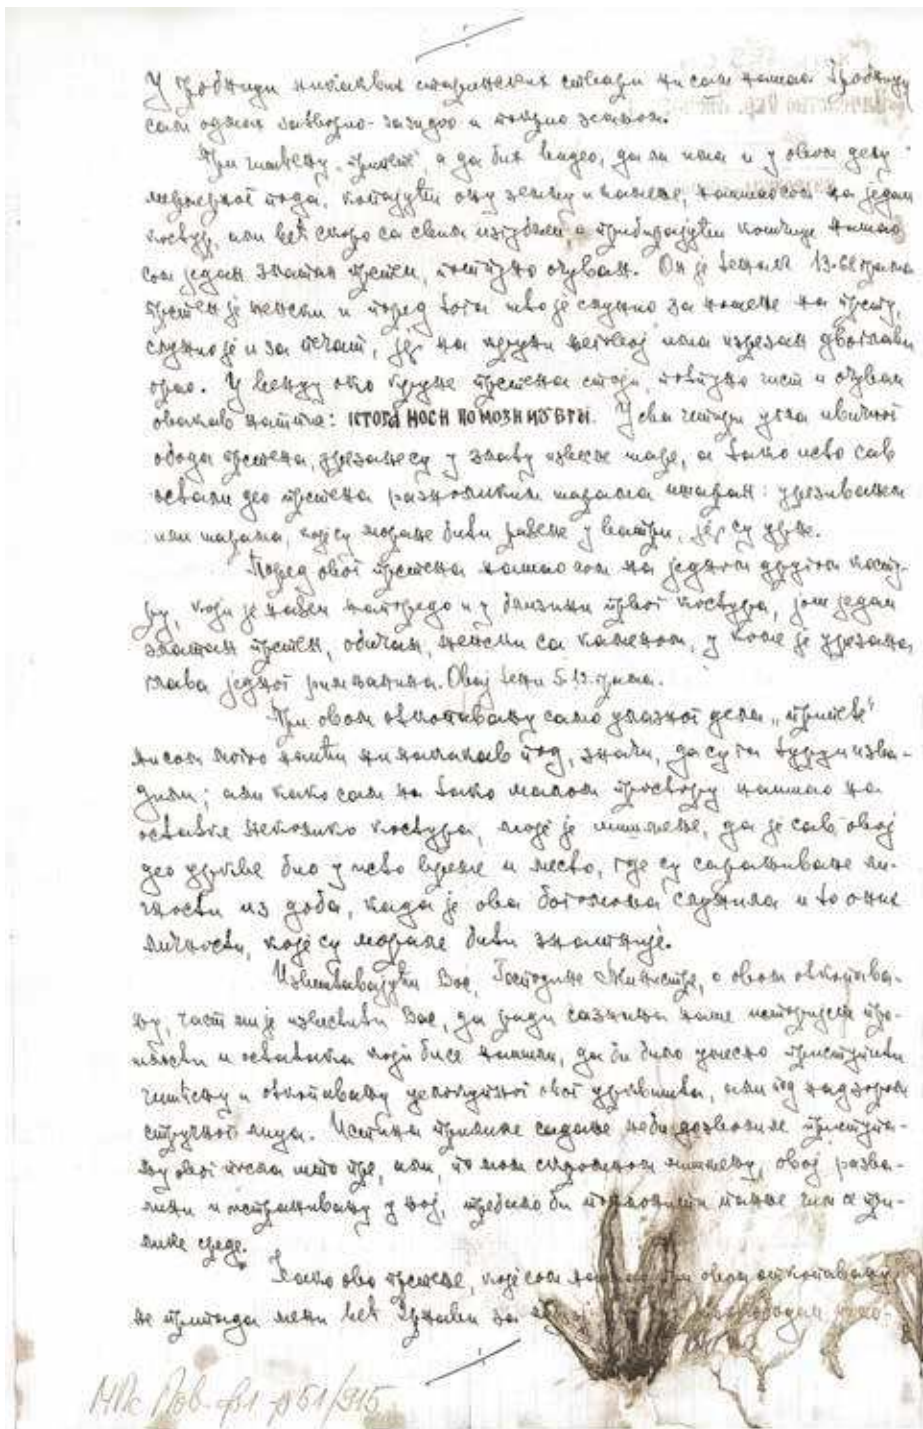 У гробници никаквих старинских ствари ни сам нашао. Гробницу
сам одмах затворио-зазидао и тачно
При чишћењу „припрете“ а да бих видео, да ли има и у овом делу
мермерног пода, копајући ону земљу и камење, нашао сам на један
костур, али већ скоро са свим изгубљен, а прибирајући кошчице нашао
сам један златан прстен, потпуно очуван. Он је тежак 13·68 грама
прстен је женски и поред тога што је служио за ношење на прсту,
служио је и за печат, јер на круни његовој има изрезан двоглави
орао. У венцу око круне прстена стоји, потпуно чист и очуван
овакав натпис: КТОГА НОСИ ПОМОЗИ МУ БГЪ. У сва четири угла
обода прстена, урезане су у злату извесне шаре, а тако исто сав
остали део прстена разноликим шарама ишаран: урезивања
или шарања, које су морале бити рађене у ватри, јер су црне.
Поред овог прстена нашао сам на једном другом косту-
ру, који је лежао напоредо и у близини првог костура, још један
златан прстен, обичан, женски са каменом, у коме је урезана
глава једног римљанина. Овај тежи 5·12 грама.
При овом откопавању само улазног дела „припрете“
нисам могао наћи никакав под, значи, да су га Турци изва-
дили; али како сам на тако малом простору нашао на
остатке неколико костура, моје је мишљење, да је сав овај
део цркве био у исто време и место, где су сарањиване ли-
чности из доба, када је ова богомоља служила и то оне
личности, које су морале бити знатније.
Извештавајући Вас, Господине Министре, о овом откопава-
њу, част ми је известити Вас, да ради сазнања наше историјске про-
шлости и остатака који би се нашли, да би било умесно приступити
чишћењу и откопавању целокупног овог црквишта, али под надзором
стручног лица. Истина прилике садање неби дозволиле приступа-
њу овог посла што пре, али, по мом скромном мишљењу, овој разва-
лини и истраживању у њој, требало би поклонити пажње чим се при-
лике среде.
Како ово прстење, које сам нашао при овом откопавању
не припада мени већ Држави за
НПк Пов. ф1 р51/915